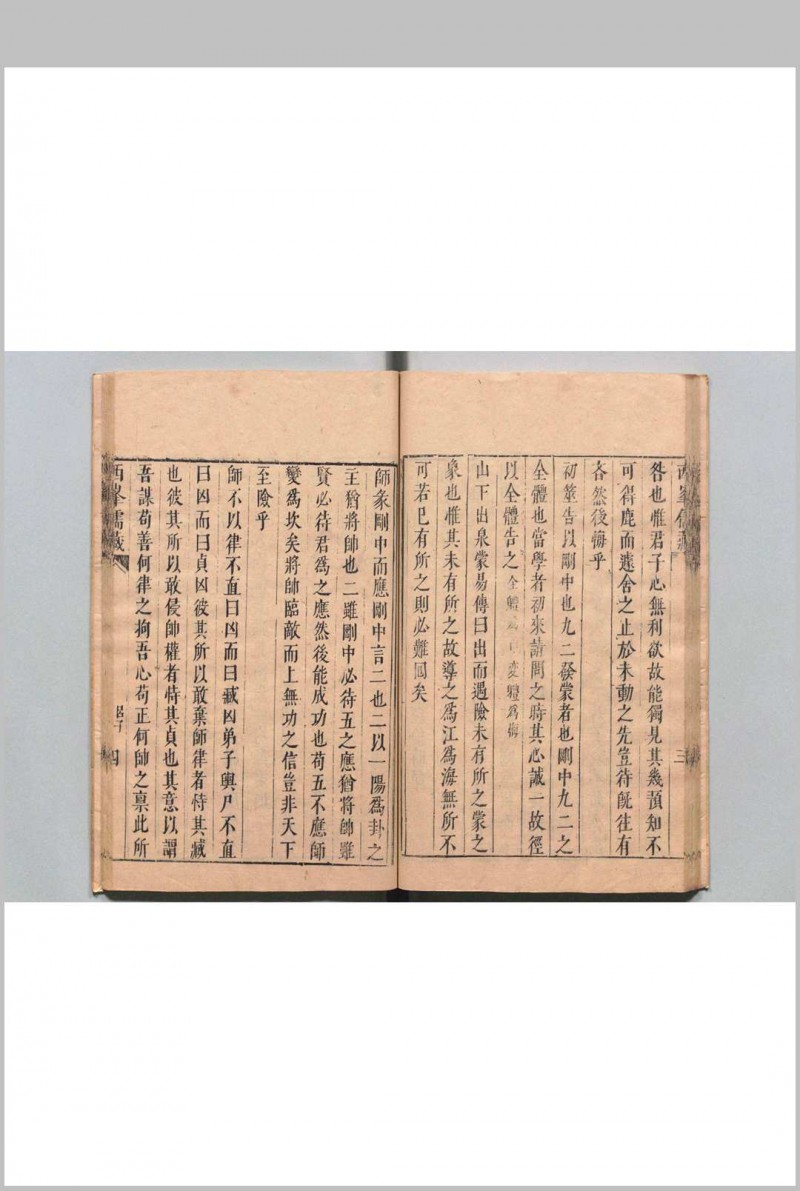 咎也惟君子心無利欲故能獨見其幾預知不
可得鹿而遂舍之止於未動之先豈待旣往有
吝然後悔乎
初筮告以剛中也九二發蒙者也剛中九二之
全體也當學者初來請問之時其心誠一故徑
以全體告之全體變體爲
山下出泉蒙易傳曰出而遇險未有所之蒙之
象也惟其未有所之故導之爲江爲海無所不
可若已有所之則必難回矣
三
師彖剛中而應剛中言二也二以一陽爲卦之
主猶將帥也二雖剛中必待五之應猶將帥雖
賢必待君爲之應然後能成功也苟五不應師
變爲坎矣將帥臨敵而上無功之信豈非天下
至險乎
師不以律不直曰凶而曰臧凶弟子輿尸不直
曰凶而曰貞凶彼其所以敢棄師律者恃其臧
也彼其所以敢侵帥權者恃其貞也其意以謂
吾謀苟善何律之拘吾心苟正何帥之稟此所
西峯儒藏
四